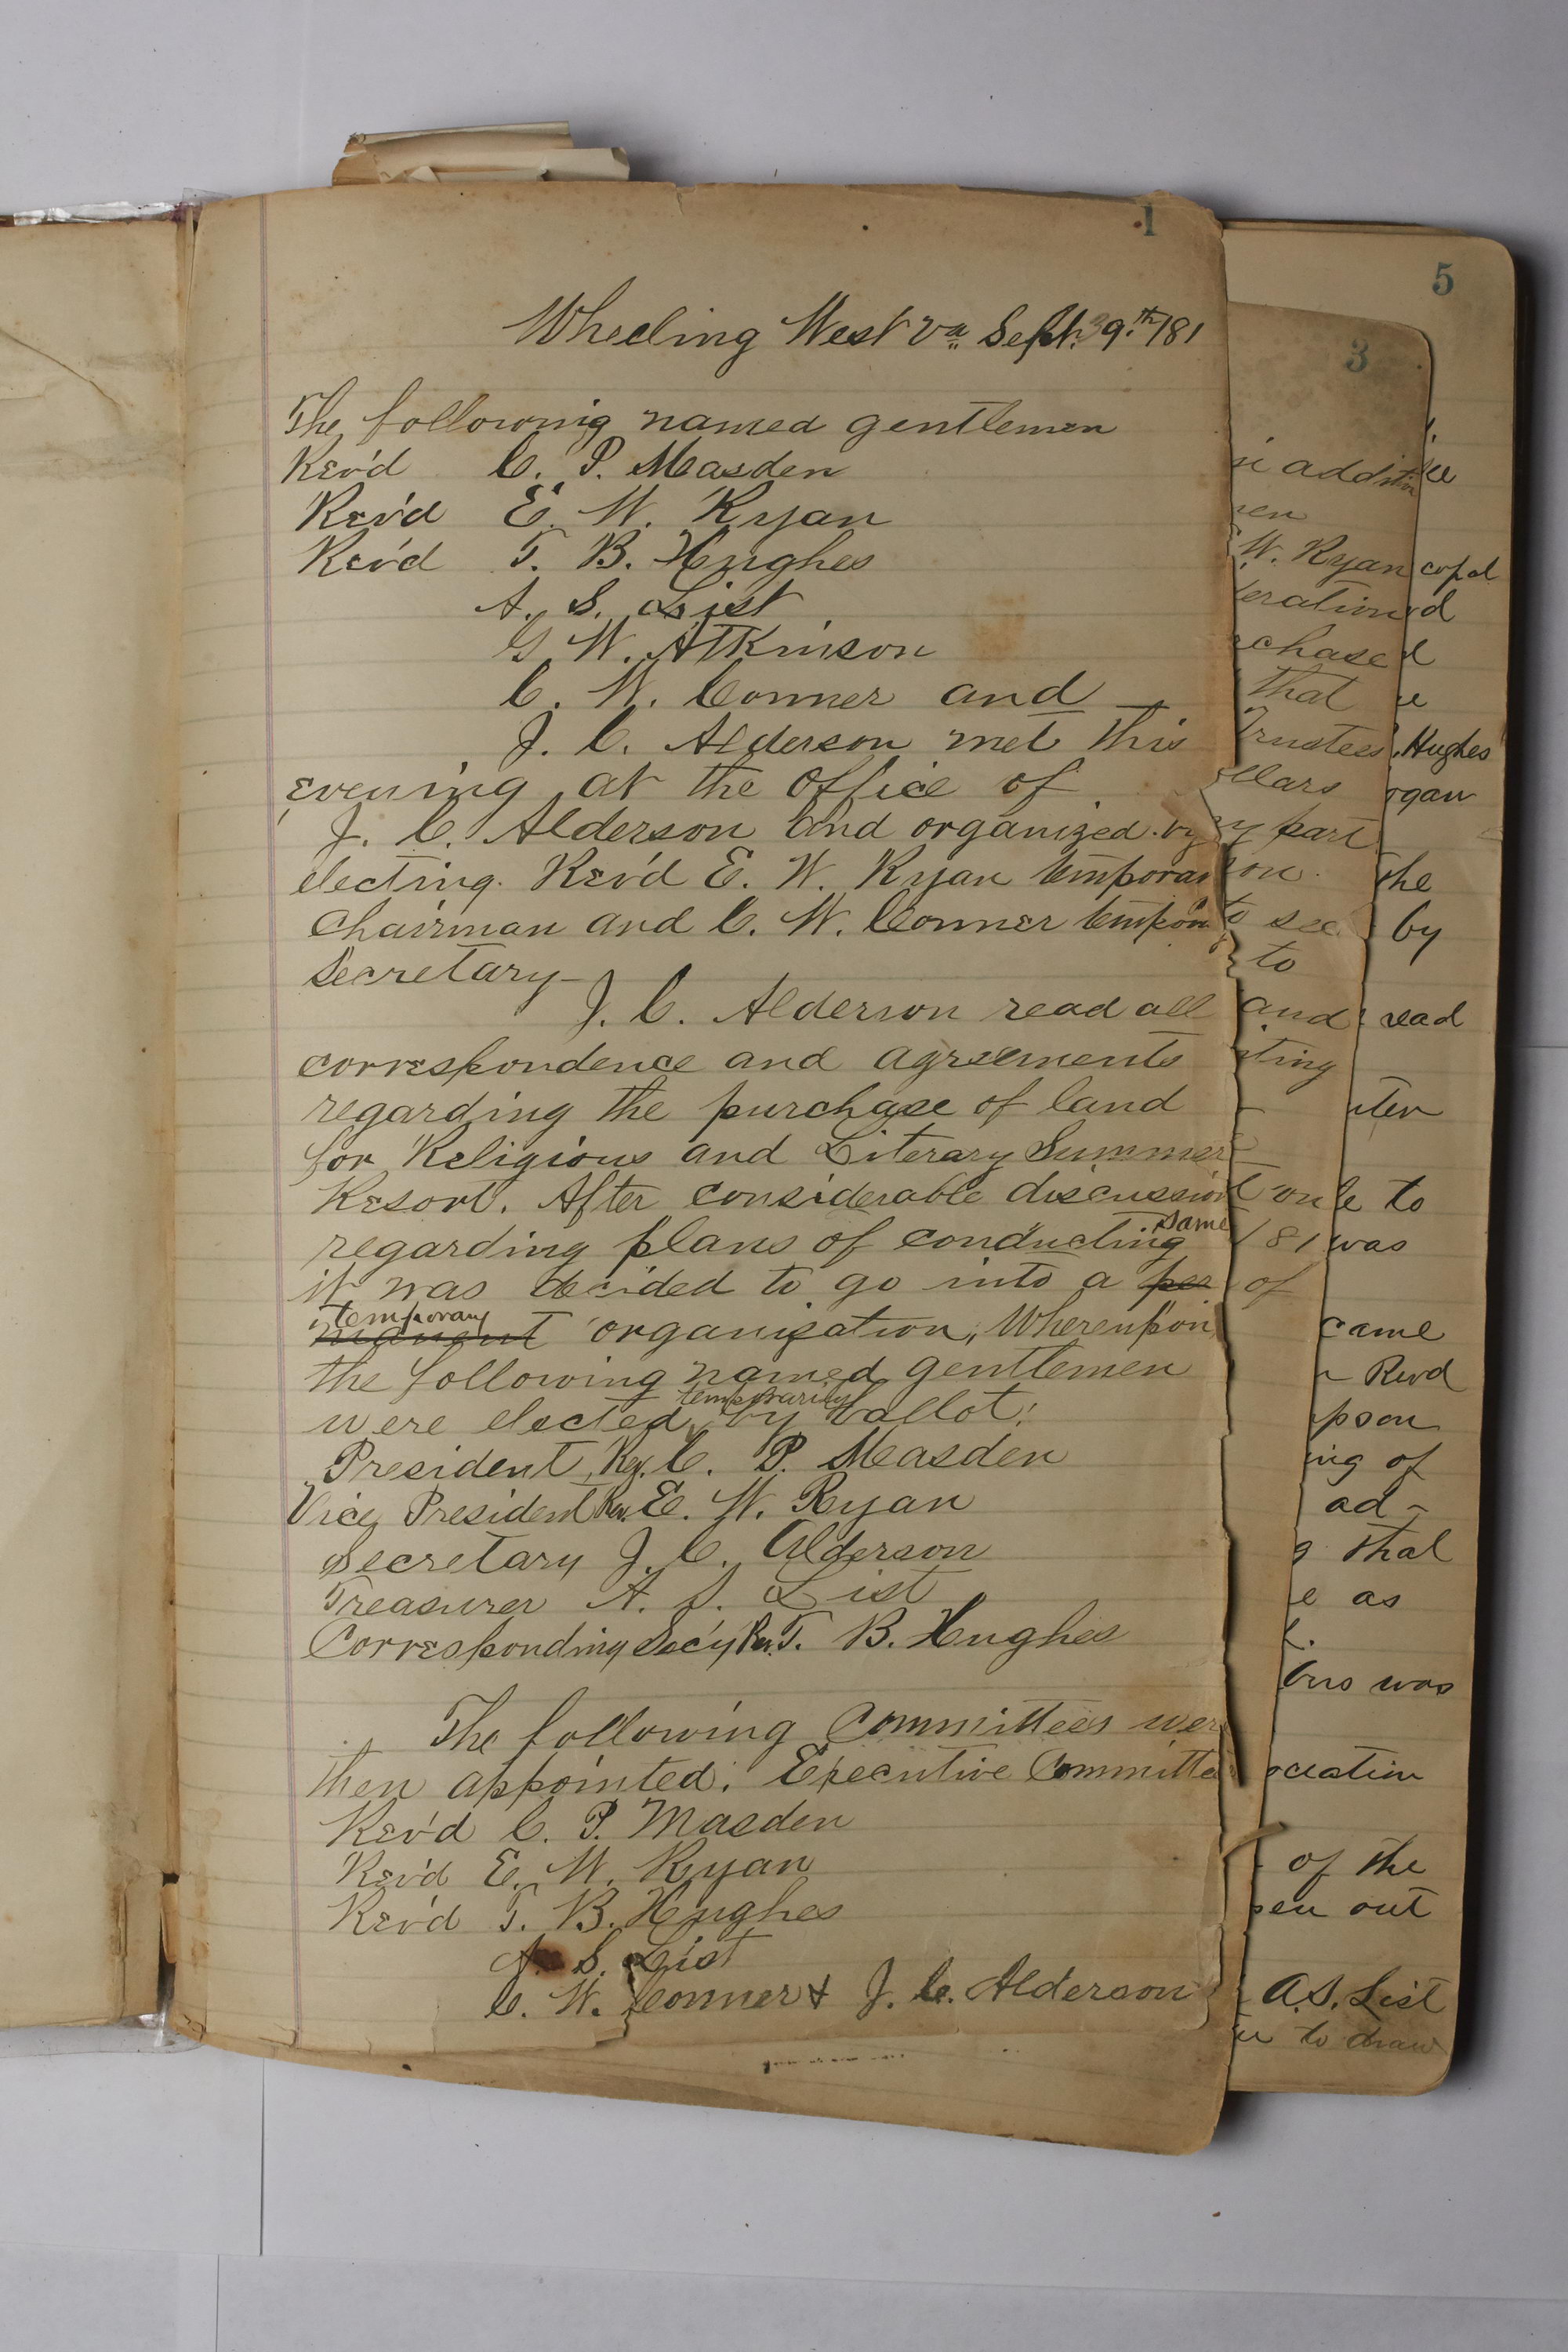 1
Wheeling West Va Sept. 9.th /81
The following named gentlemen
Rev'd C. P. Masden
Rev'd E. W. Ryan
Rev'd T. B. Hughes
A. S. List
G W. Atkinson
C. W. Conner and
J. C. Alderson met this
evening at the office of
J. C. Alderson and organized by
electing Rev'd E. W. Ryan temporar
Chairman and C. W. Conner tempor
Secretary—
J. C. Alderson read all
correspondence and agreements
regarding the purchase of land
for Religious and Literary Summer
Resort. After considerable discussion
regarding plans of conducting same
it was decided to go into a per
manent temporary organization, Whereupon
the following named gentlemen
were elected temporarily by ballot:
President Rev. C. P. Masden
Vice President Rev. E. W. Ryan
Secretary J. C. Alderson
Treasurer A. S. List
Corresponding Sec'y Rev. T. B. Hughes
The following Committees wer
then appointed. Executive Committe
Rev'd C. P. Masden
Rev'd E. W. Ryan
Rev'd T. B. Hughes
A. S. List
C. W. Conner & J. C. Alderson
3
W. Ryan
chased
that
Trustees
ollars
part
on
to see
to
and
on
/81
of
5
Hughes
the
by
read
to
was
came
Revd
ing of
ad-
that
as
was
of the
out
A. S. List
to draw